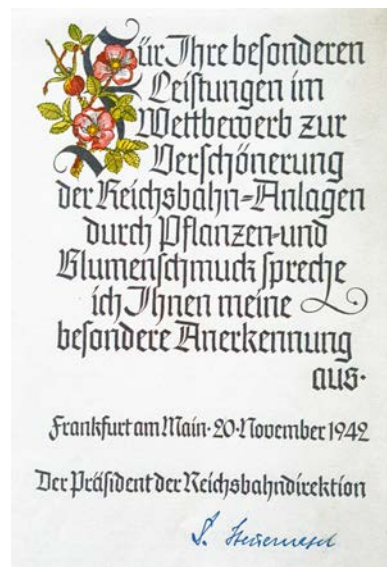 Für Ihre besonderen
Leistungen im
Wettbewerb zur
Verschönerung
der Reichsbahn-Anlagen
durch Pflanzen- und
Blumenschmuck spreche
ich Ihnen meine
besondere Anerkennung
aus.
Frankfurt am Main · 20. November 1942
Der Präsident der Reichsbahndirektion